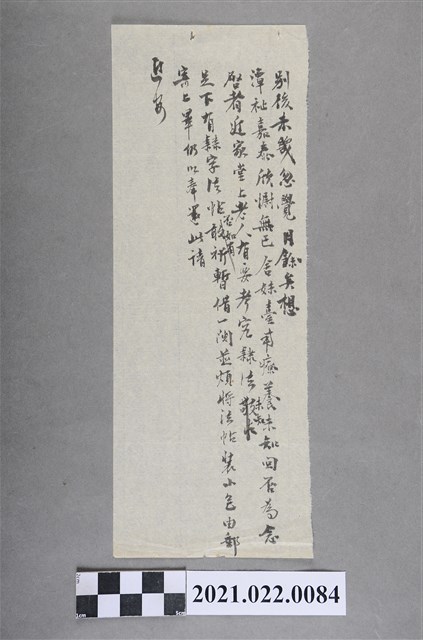 別後未幾忽覺月餘矣想
潭祉嘉泰欣慰無已舍妹臺南療養未知回否為念
啓者近家堂上老人有要考究隸法
未知
足下有隸字法帖否如有敢祈暫借一閱並煩將法帖裝小包由郵
寄上畢仍以奉還此請
近安
2021.022.0084